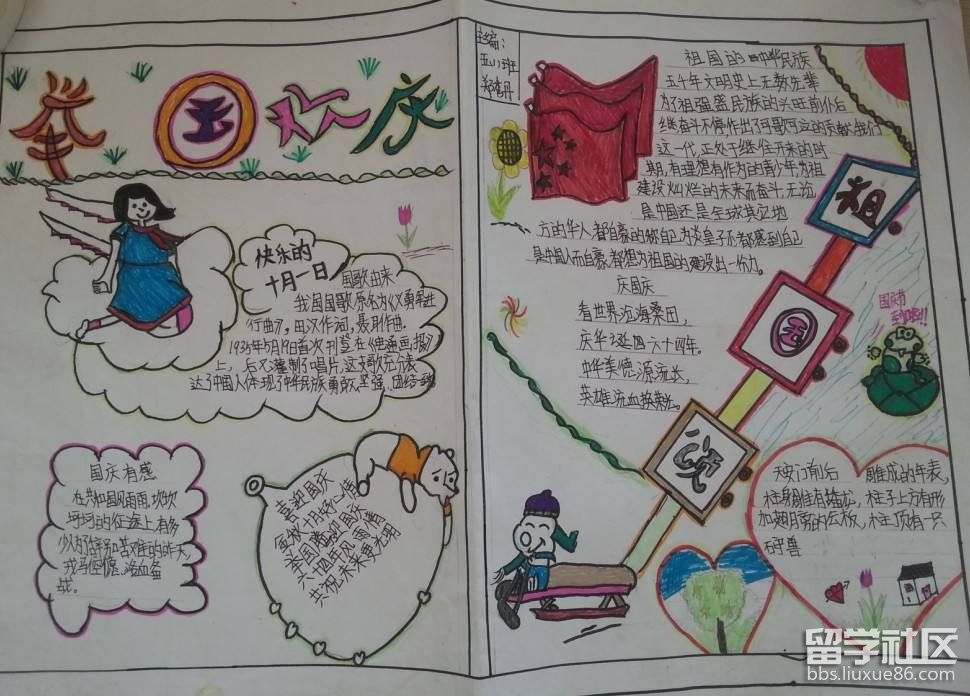 举国欢庆
快乐的
十月一日
国歌由来
我国国歌原名为《义勇军进
行曲》,田汉作词,聂耳作曲。
1935年5月19日首次刊登在《电通画报》
上,后灌制了唱片,这支歌充分表
达了中国人体现了中华民族勇敢、坚强、团结
国庆有感
在共和国风雨雨,坎坎
坷坷的征途上,有多
少苦难的昨天,
喜迎国庆
金秋十月好心情
举国腾迎国庆
六十四年风雨
共祝未来更光明
主编:
五(1)班
祖国的中华民族
五千年文明史上无数先辈
为了祖强富民族的兴旺前仆后
继奋斗不停作出了可歌可泣的贡献我们
这一代,正处于继往开来的时
期,有理想有作为的青少年为祖
建设灿烂的未来而奋斗,无论
是中国还是全球其它地
方的华人都自豪的称自己为炎皇子,都感到自己
是中国人而自豪,都想为祖国的建设出一份力。
庆国庆
看世界沉海桑田,
庆华诞四六十四年。
中华美德源流长,
英雄流血换来。
祖
国
颂
国庆节
到啦!!
天安门前后
雕成的年表,
柱身雕有
柱子上方有形
加翅的云板,柱顶有一只
石兽
留学社区
bbs.liuxue86.com